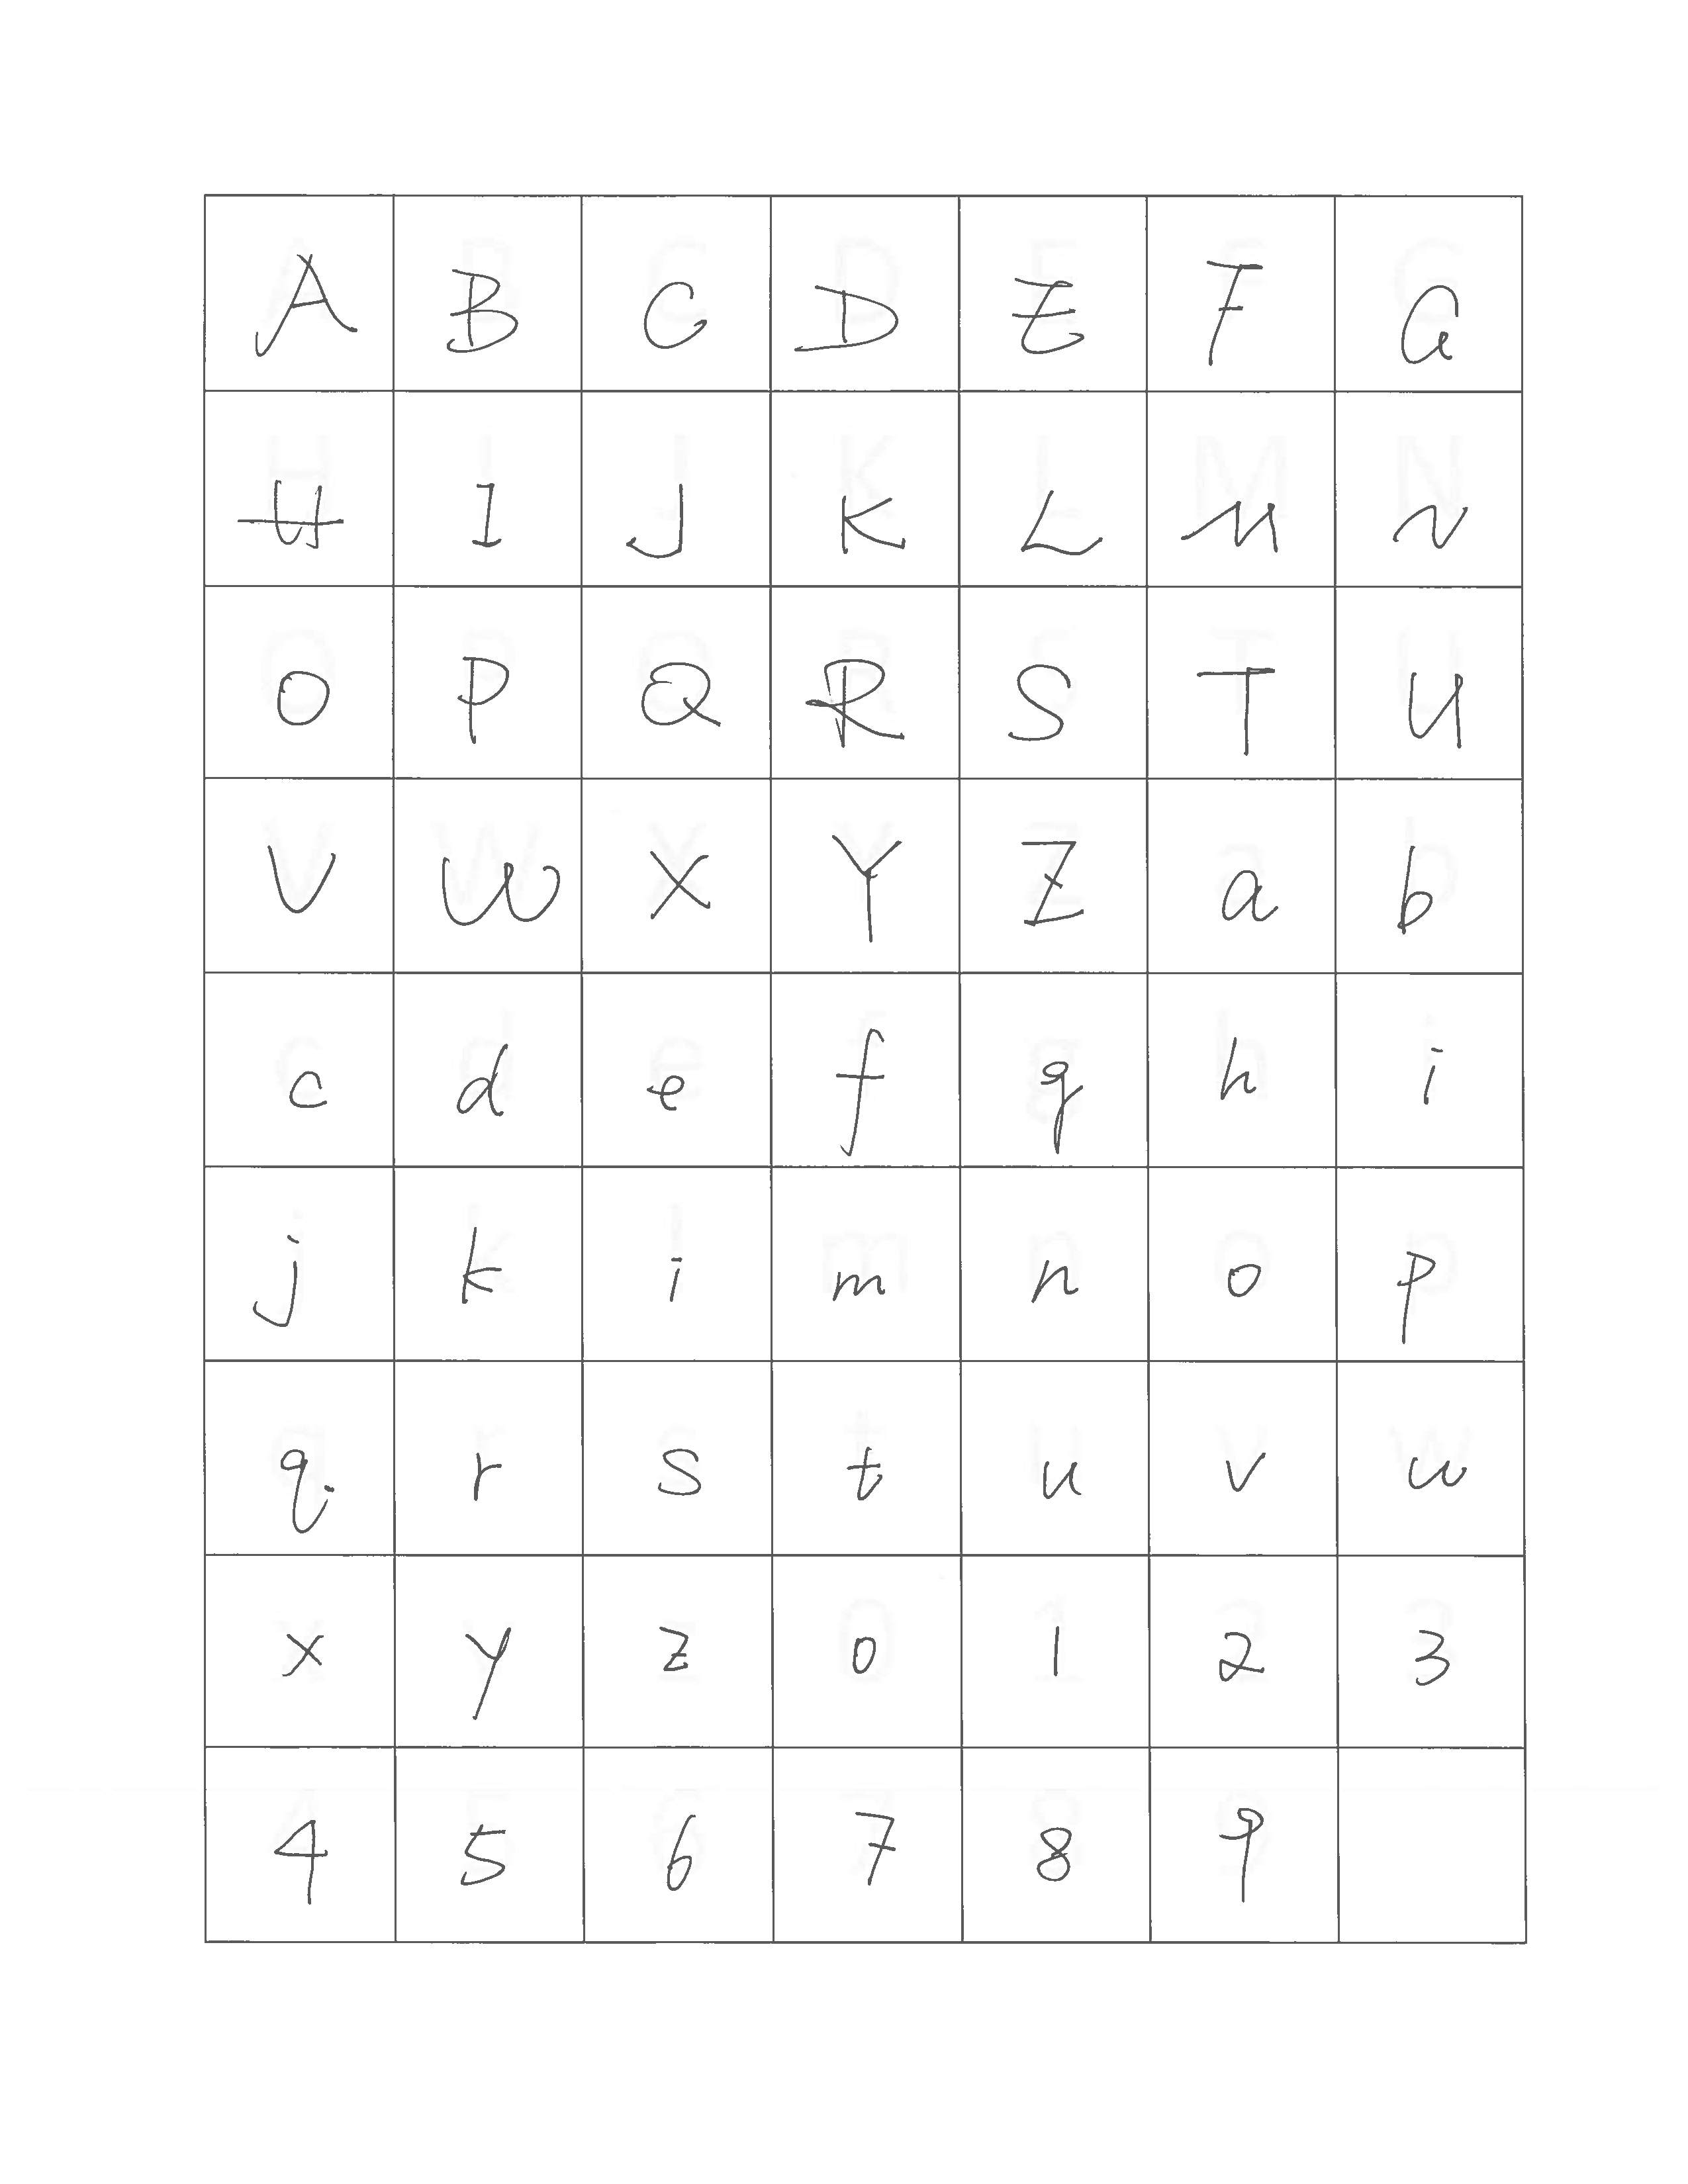 A B C D E F G
H I J K L M N
O P Q R S T U
V W X Y Z a b
c d e f g h i
j k i m n o p
q r s t u v w
x y z 0 1 2 3
4 5 6 7 8 9